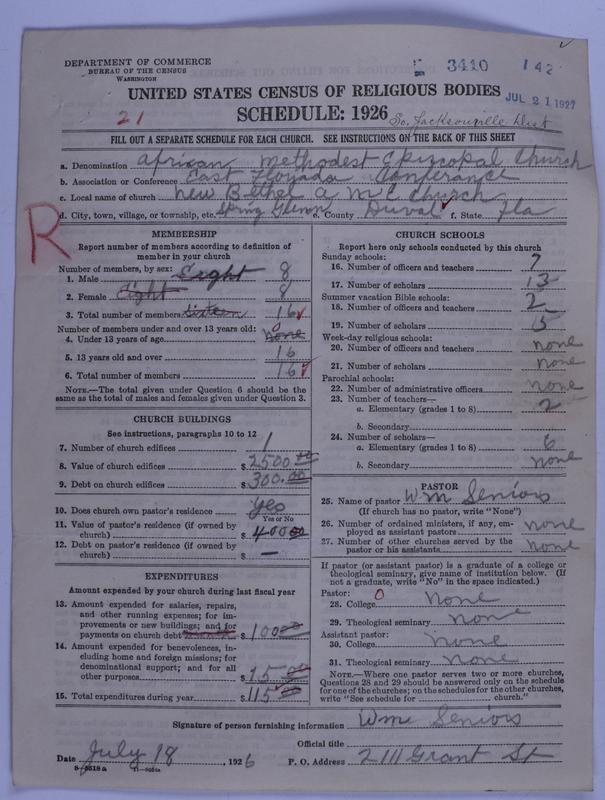 DEPARTMENT OF COMMERCE
BUREAU OF THE CENSUS
WASHINGTON
3410 142
UNITED STATES CENSUS OF RELIGIOUS BODIES
JUL 21 1927
21
SCHEDULE: 1926
So. Jacksonville Dist
FILL OUT A SEPARATE SCHEDULE FOR EACH CHURCH. SEE INSTRUCTIONS ON THE BACK OF THIS SHEET
a. Denomination African Methodest Episcopal Church
b. Association or Conference East Floriada Conferance
c. Local name of church New Bethel A M E Church
d. City, town, village, or township, etc. Spring Glenn e. County Duval f. State Fla
R
MEMBERSHIP
Report number of members according to definition of member in your church
Number of members, by sex:
1. Male Eight 8
2. Female Eight 8
3. Total number of members Sixteen 16
Number of members under and over 13 years old:
4. Under 13 years of age 0 none
5. 13 years old and over 16
6. Total number of members 16
NOTE.—The total given under Question 6 should be the same as the total of males and females given under Question 3.
CHURCH BUILDINGS
See instructions, paragraphs 10 to 12
7. Number of church edifices 1
8. Value of church edifices $ 2500.00
9. Debt on church edifices $ 300.00
10. Does church own pastor's residence yes
Yes or No
11. Value of pastor's residence (if owned by church) $ 400
12. Debt on pastor's residence (if owned by church) $ —
EXPENDITURES
Amount expended by your church during last fiscal year
13. Amount expended for salaries, repairs, and other running expenses; for improvements or new buildings; and for payments on church debt $ 100
14. Amount expended for benevolences, including home and foreign missions; for denominational support; and for all other purposes $ 15 00
15. Total expenditures during year $ 115
CHURCH SCHOOLS
Report here only schools conducted by this church
Sunday schools:
16. Number of officers and teachers 7
17. Number of scholars 13
Summer vacation Bible schools:
18. Number of officers and teachers 2
19. Number of scholars 5
Week-day religious schools:
20. Number of officers and teachers none
21. Number of scholars none
Parochial schools:
22. Number of administrative officers none
23. Number of teachers—
a. Elementary (grades 1 to 8) 2
b. Secondary
24. Number of scholars—
a. Elementary (grades 1 to 8) 6
b. Secondary none
PASTOR
25. Name of pastor Wm Seniors
(If church has no pastor, write "None")
26. Number of ordained ministers, if any, employed as assistant pastors none
27. Number of other churches served by the pastor or his assistants none
If pastor (or assistant pastor) is a graduate of a college or theological seminary, give name of institution below. (If not a graduate, write "No" in the space indicated.)
Pastor: 0
28. College none
29. Theological seminary none
Assistant pastor:
30. College none
31. Theological seminary none
NOTE.—Where one pastor serves two or more churches, Questions 28 and 29 should be answered only on the schedule for one of the churches; on the schedules for the other churches, write "See schedule for ... church."
Signature of person furnishing information Wm Seniors
Official title
Date July 18, 1926 P. O. Address 2111 Grant St